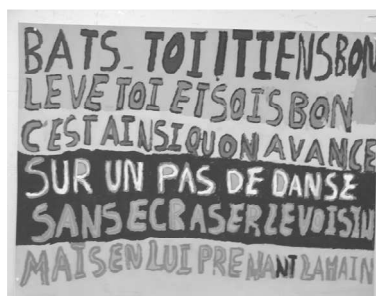 BATS-TOI ! TIENS BON
LEVE TOI ET SOIS BON
C'EST AINSI QU ON AVANCE
SUR UN PAS DE DANSE
SANS ECRASER LE VOISIN
MAIS EN LUI PRENANT LA MAIN